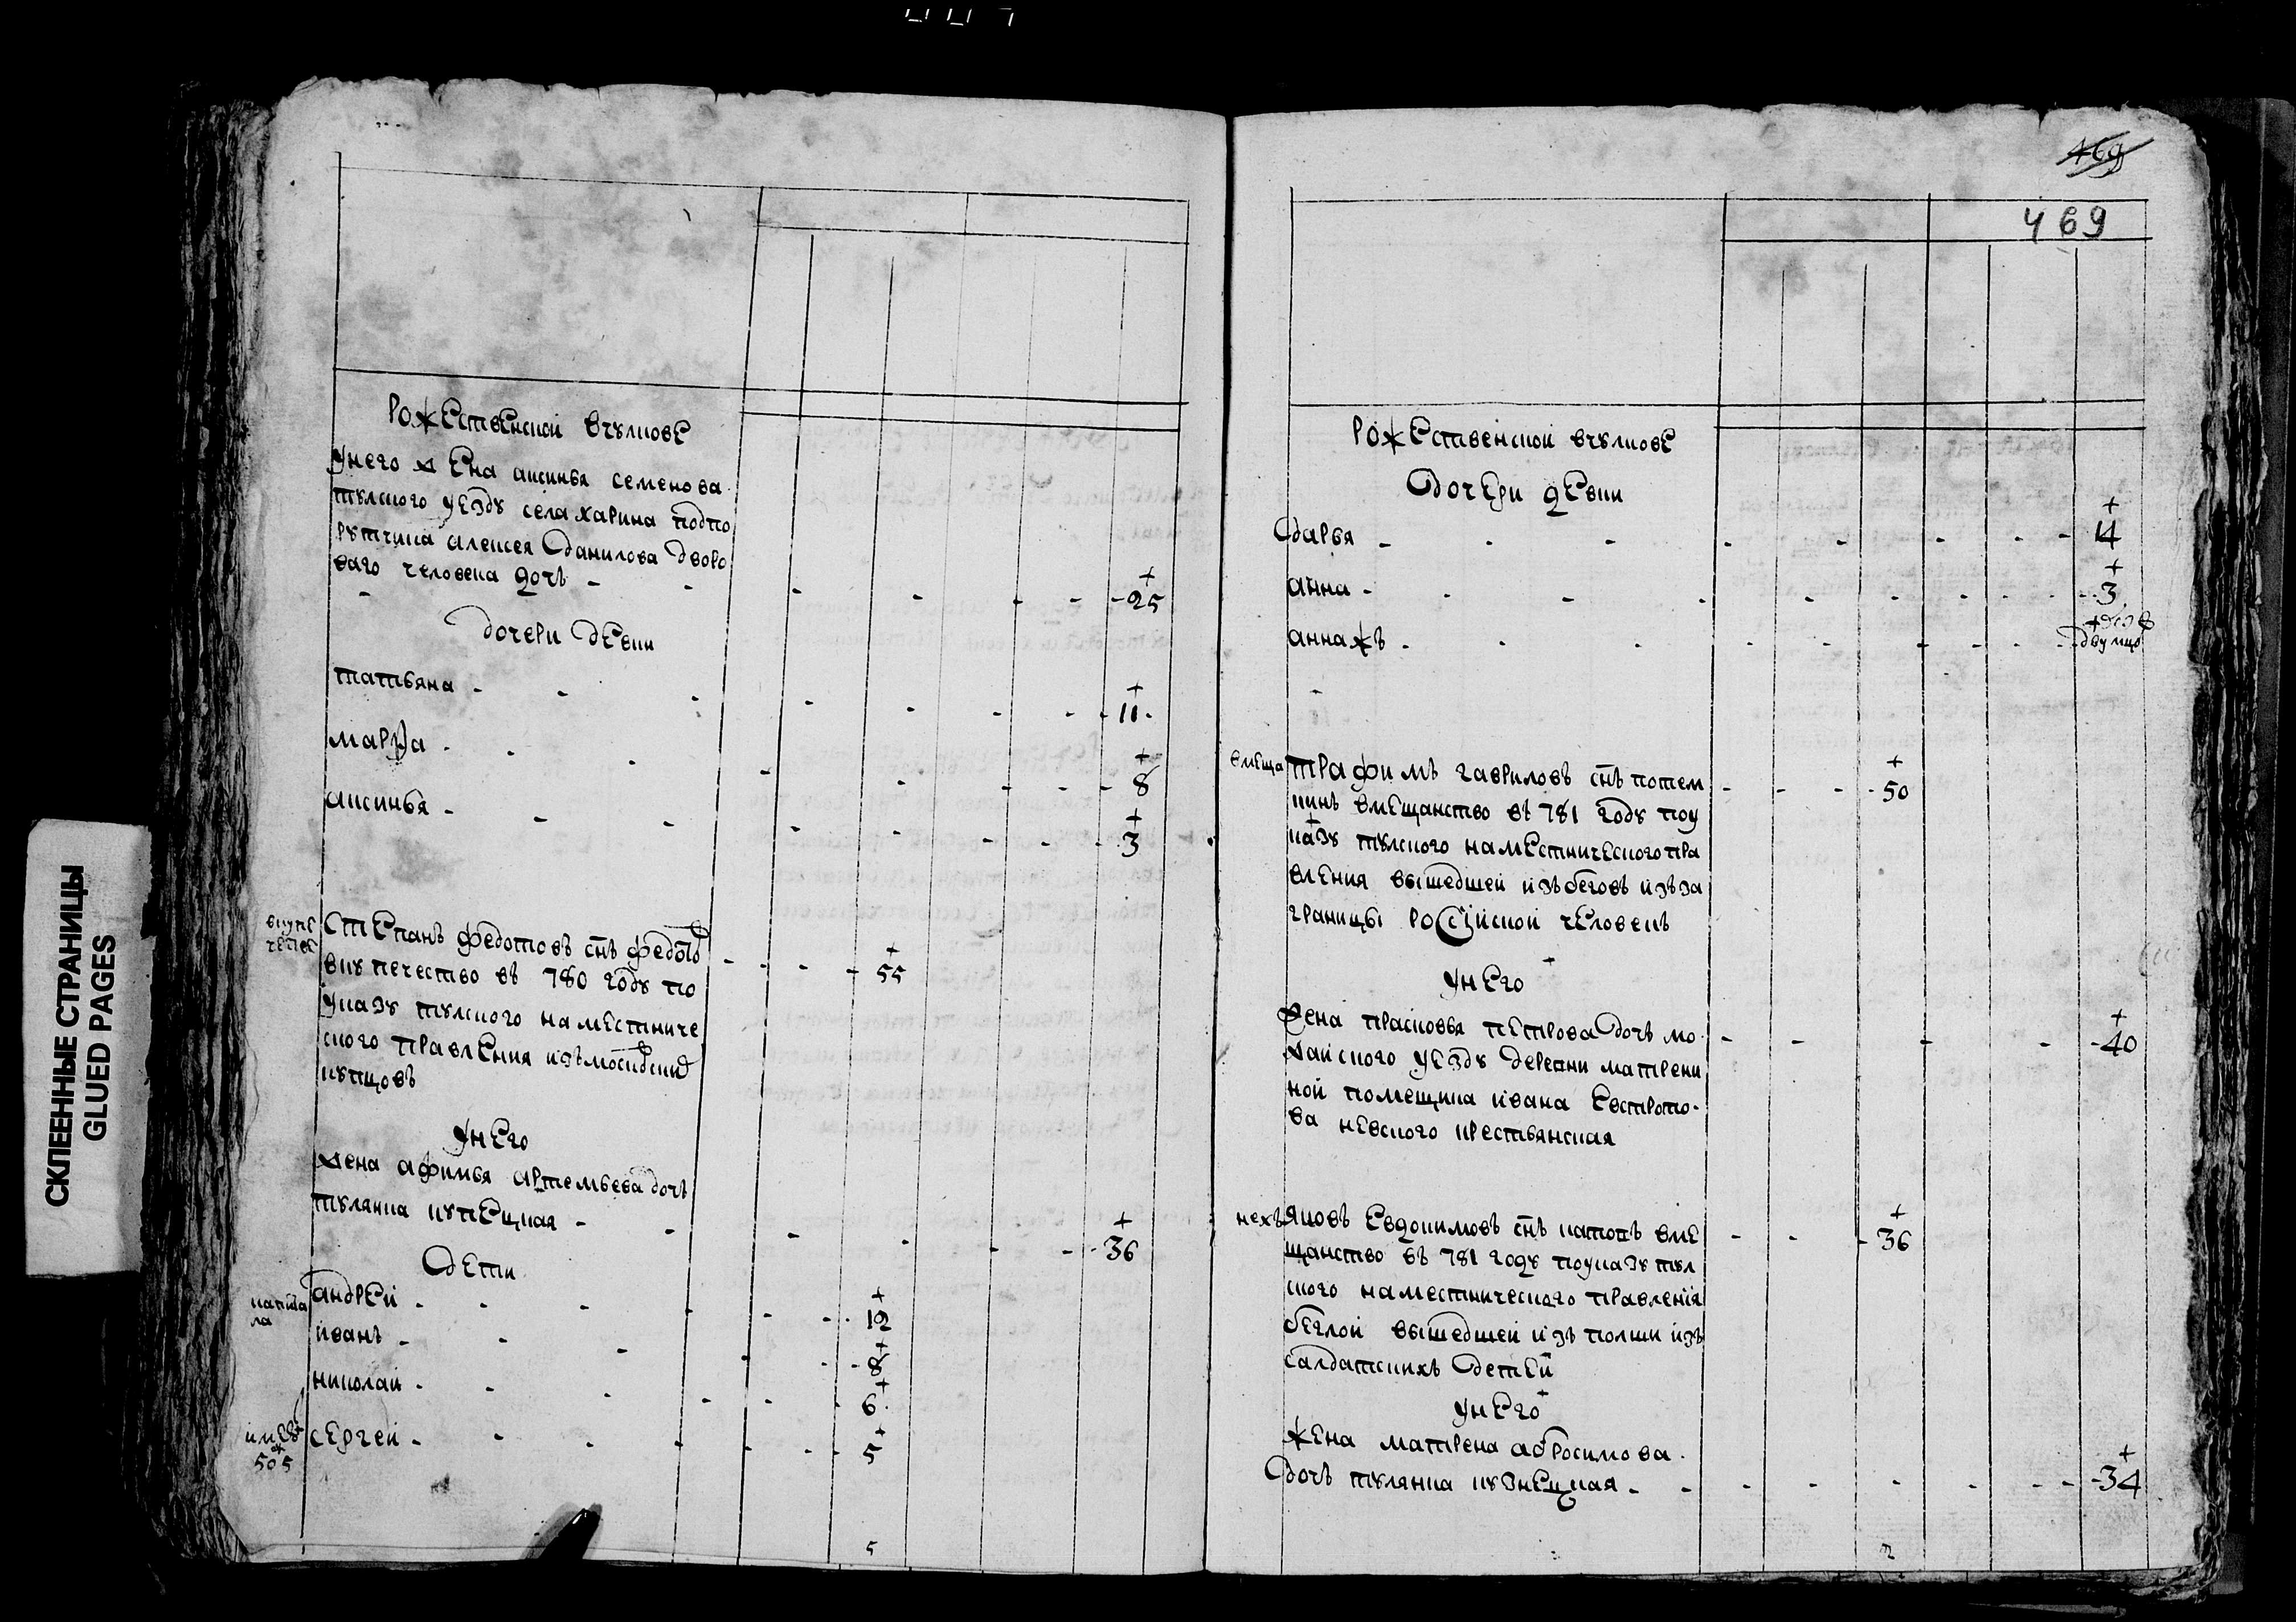 СКЛЕЕННЫЕ СТРАНИЦЫ
GLUED PAGES
Рожественской вчулкове
унего жена аксинья семенова
тулского уезду села харина подпо
рутчика алексея данилова дворо
ваго человека дочь - 25
дочери девки
татьяна - 11
марѳа - 8
аксинья - 3
вкупе
чество
степанъ федотовъ снъ федотов
вкупечество въ 780 году по
указу тулского наместниче
ского правления измосковских
купцовъ 55
унего
жена афимья артемьева дочь
тулянка купецкая - 36
дети
андреи - 12
иванъ - 8
николаи - 6
сергеи - 5
505
5
469
469
Рожественской вчулкове
дочери девки
дарья - 14
анна - 3
аннажъ -
вмеща
трафимъ гавриловъ снъ потем
кинъ вмещанство въ 781 году поу
казу тулского наместническогопра
вления вышедшей изъбеговъ изъза
границы российской человекъ 50
унего
жена прасковья петрова дочь мо
жаиского уезду деревни матрени
ной помещика ивана Евстрато
ва невского крестьянская 40
нехъ
яковъ Евдокимовъ снъ катокъ вме
щанство въ 781 году поуказу тул
ского наместнического правленія
беглой вышедшей изъ полши изъ
салдатскихъ детей 36
унего
жена матрена абросимова
дочь тулянка кузнецкая - 34